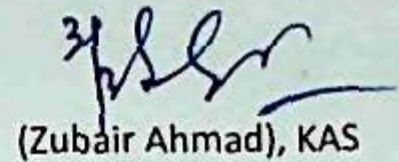 (Zubair Ahmad), KAS